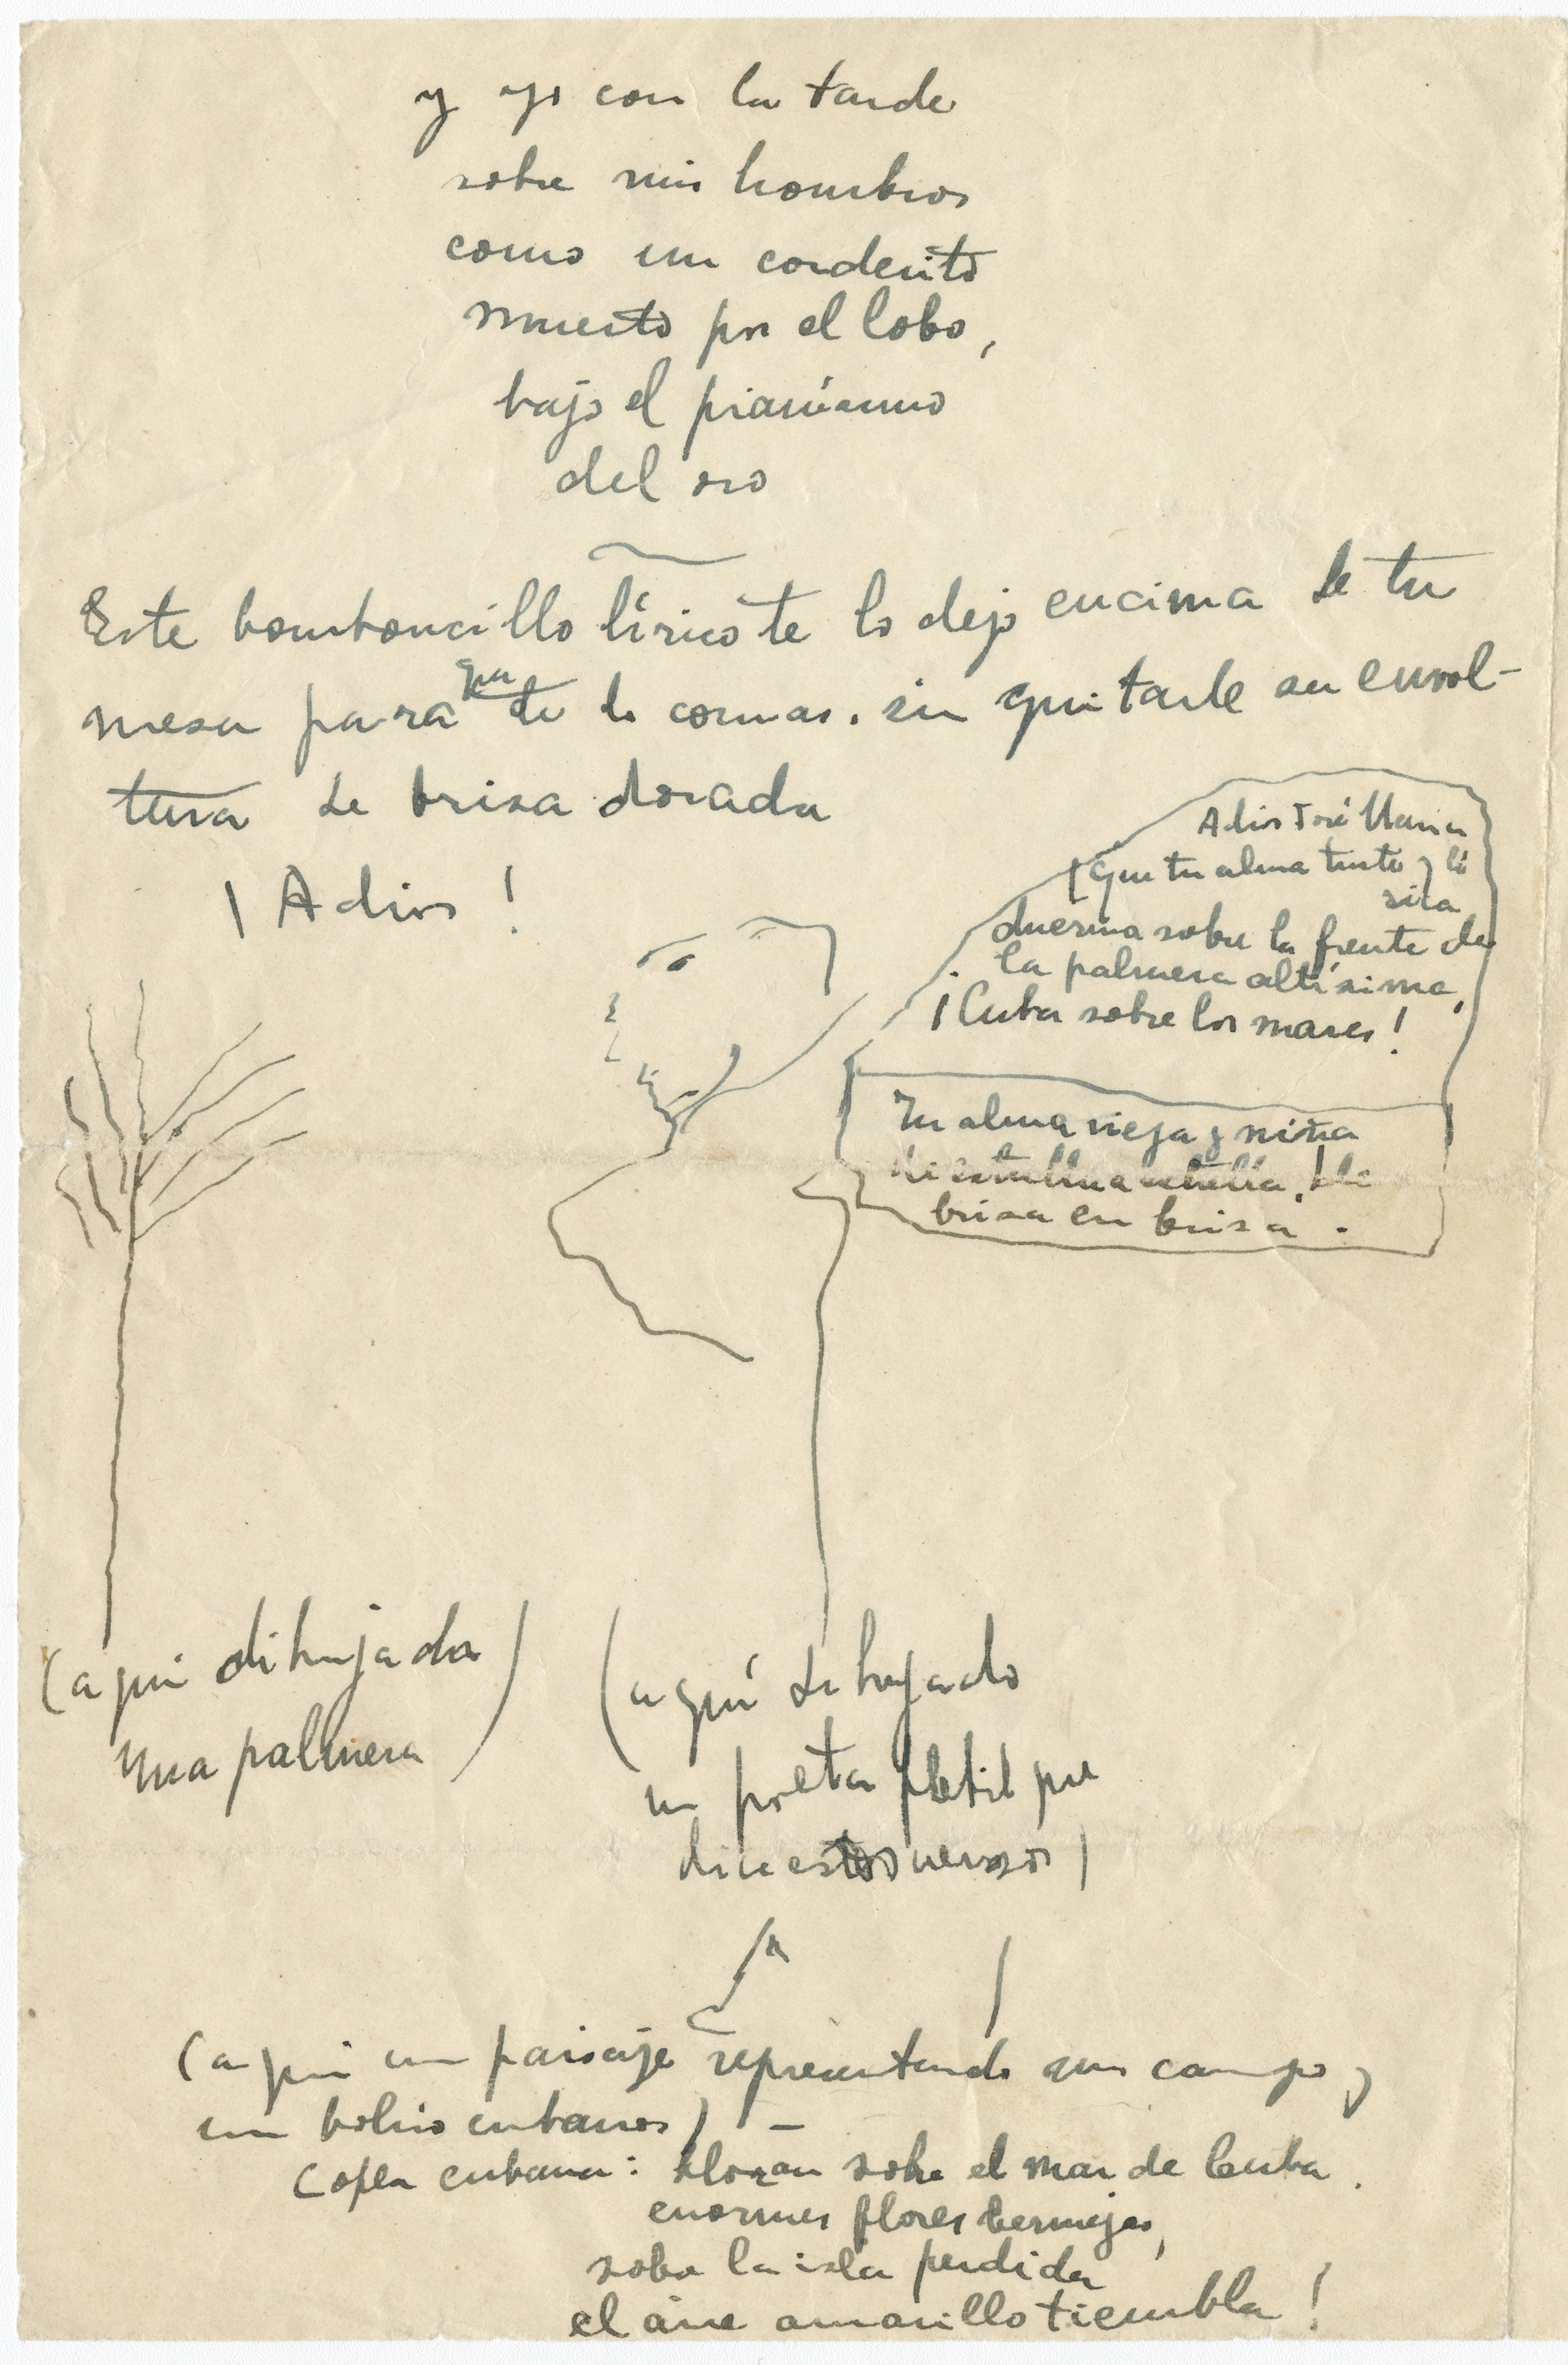 y yo con la tarde
sobre mis hombros
como un corderito
muerto por el lobo,
bajo el pianísimo
del oro
Este bomboncillo lírico te lo dejo encima de tu
mesa para que te lo comas. sin quitarle su envol-
tura de brisa dorada
¡Adios!
Adios José Maria
¡Que tu alma triste y lí
rica
duerma sobre la frente de
la palmera altísima,
¡Cuba sobre los mares!
Tu alma vieja y niña
de estrella a estrella. ¡de
brisa en brisa.
(aqui dibujada
una palmera)
(aquí dibujado
un poeta fletil que
dice estos versos)
(aqui un paisaje representando un campo y
un bohio cubanos)
Copla cubana: Lloran sobre el mar de Cuba.
enormes flores bermejas,
sobre la isla perdida
el aire amarillo tiembla!